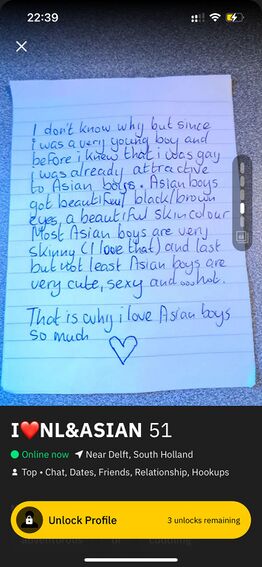 22:39
I don't know why but since
i was a very young boy and
before i knew that i was gay
i was already attractive
to Asian boys. Asian boys
got beautiful black/brown
eyes, a beautiful skin colour
Most Asian boys are very
skinny (I love that) and last
but not least Asian boys are
very cute, sexy and...hot.
That is why i love Asian boys
so much
I❤️NL&ASIAN 51
Online now Near Delft, South Holland
Top • Chat, Dates, Friends, Relationship, Hookups
Unlock Profile 3 unlocks remaining